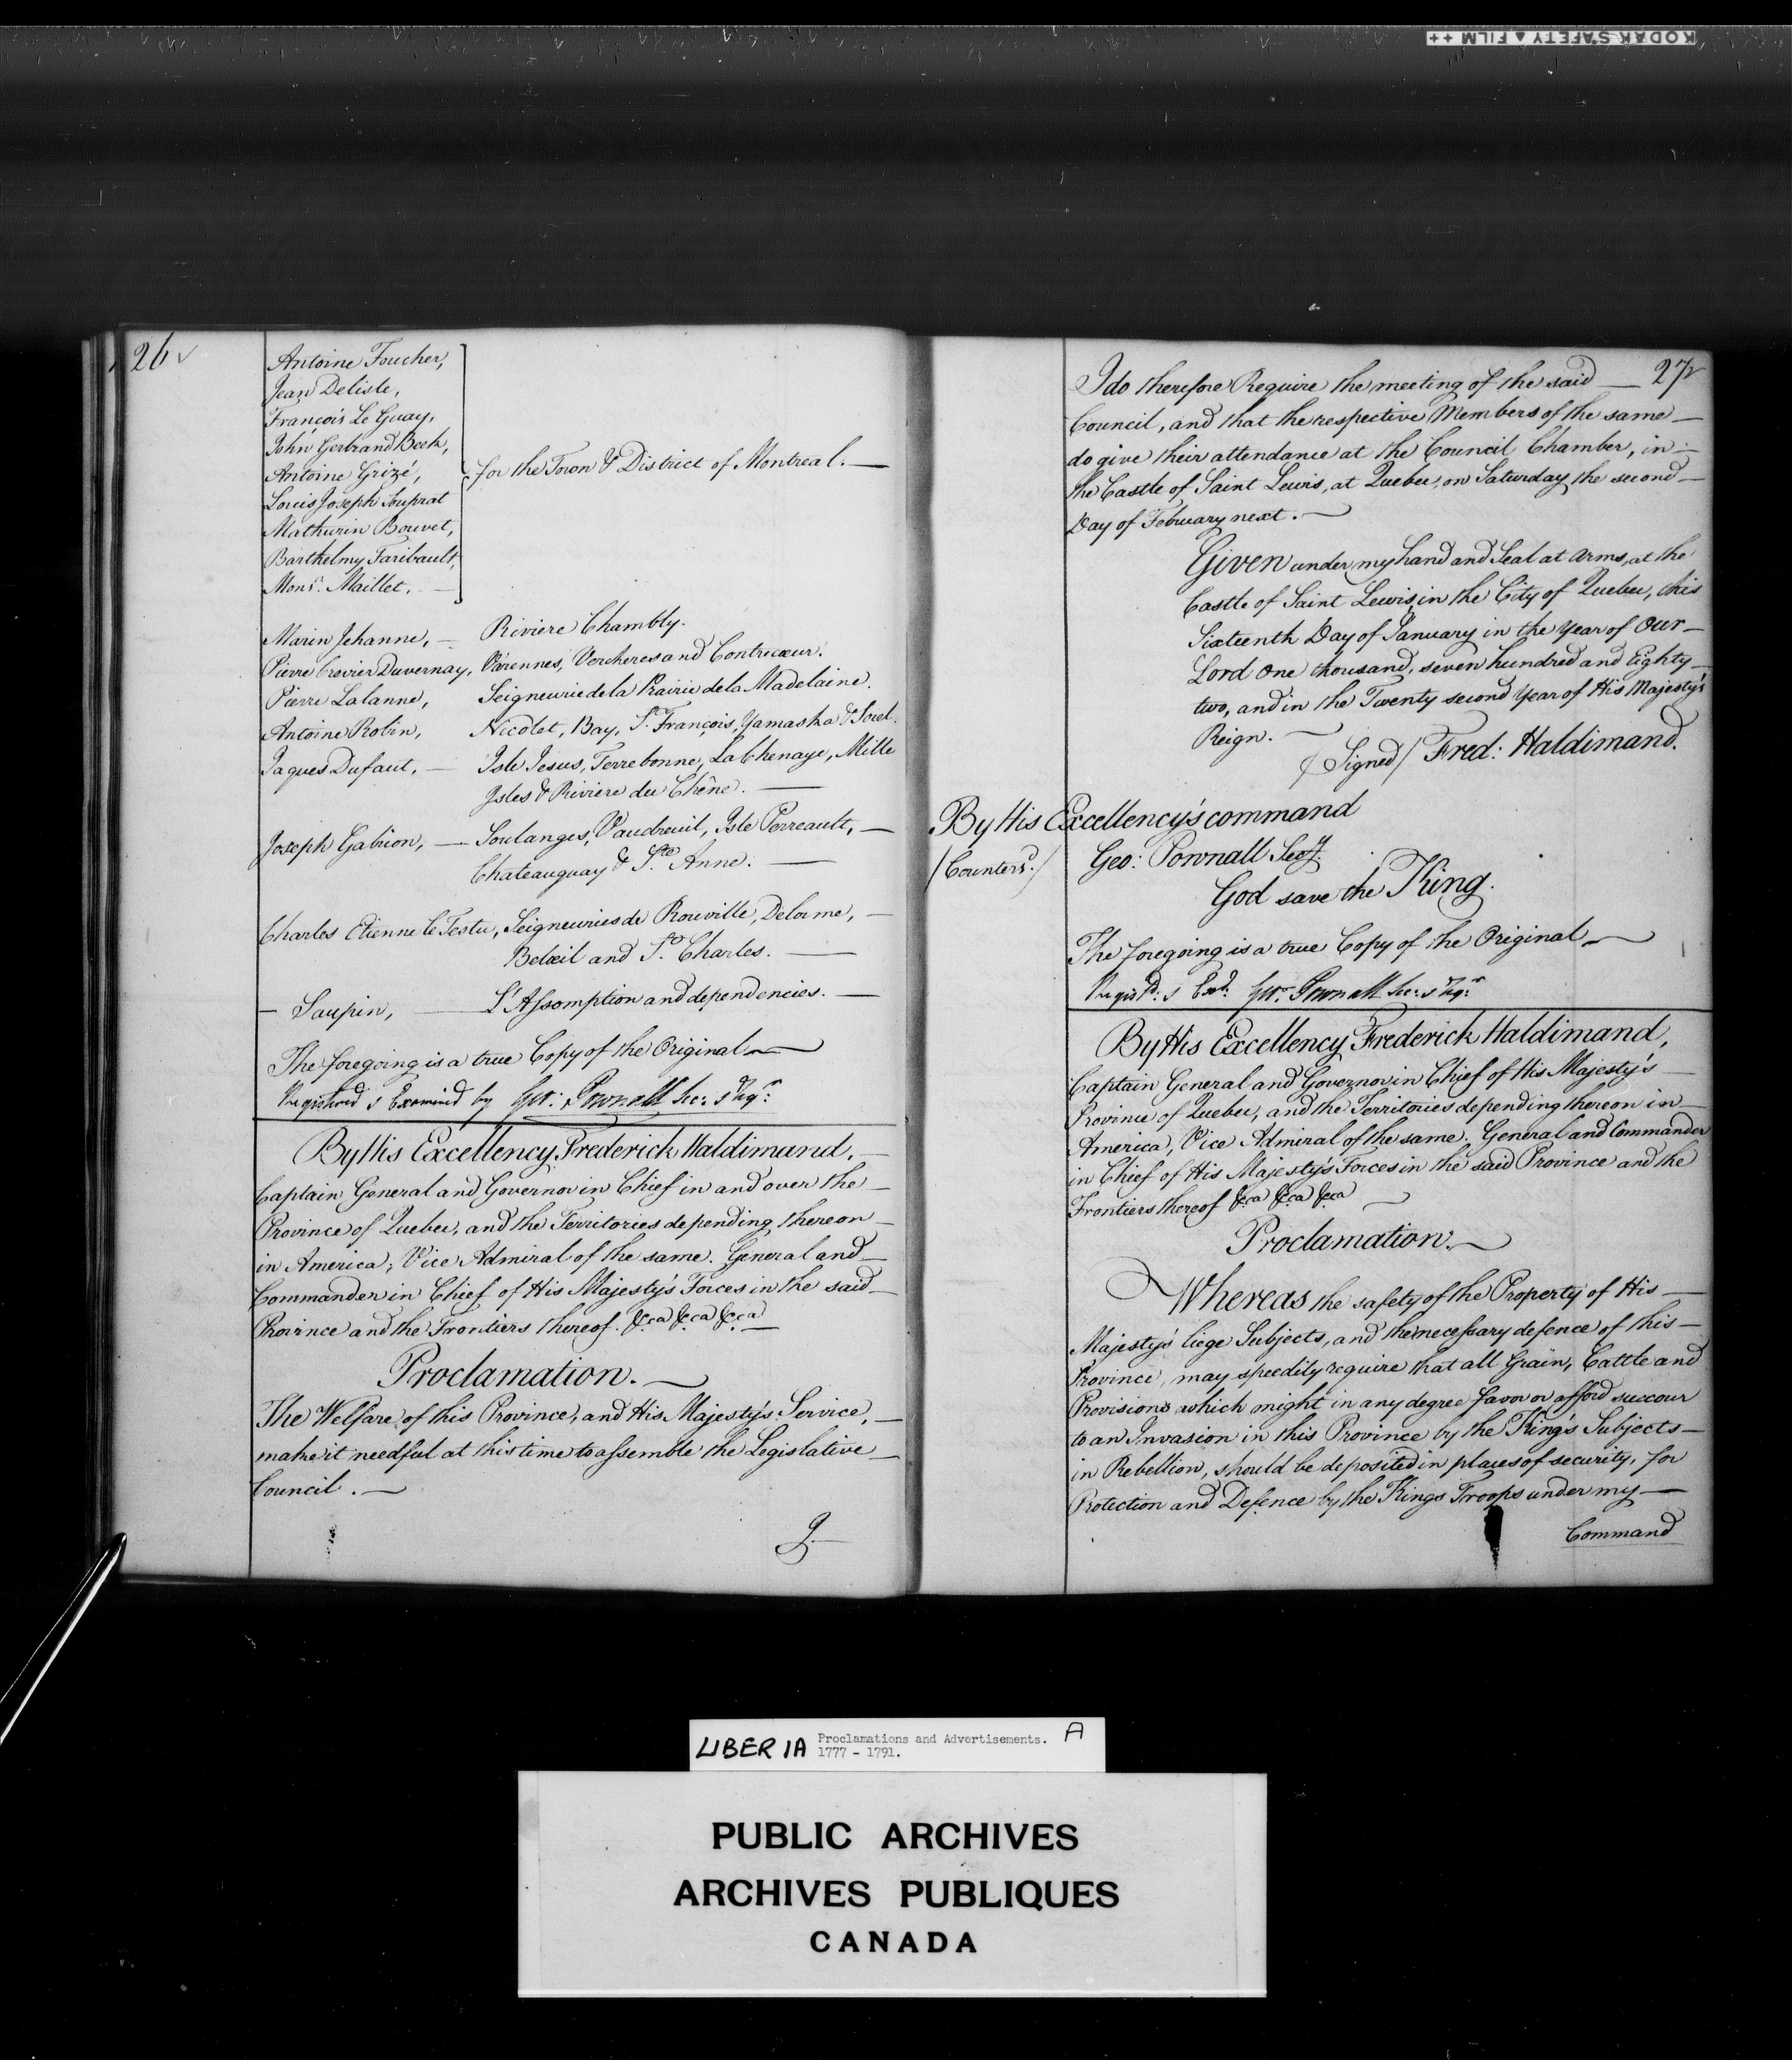 KODAK SAFETY FILM ++
26
Antoine Foucher,
Jean Delisle,
François Le Guay,
John Gerbrand Beek,
Antoine Grizé,
for the Town & District of Montreal.
Louis Joseph Souprat
Mathurin Bouvet,
Barthelmy Faribault,
Monsr. Maillet.
Marin Jehanne, — Riviere Chambly.
Pierre Crevier Duvernay, Varennes, Vercheres and Contrecœur.
Pierre Lalanne, Seigneurie de la Prairie de la Madelaine.
Antoine Robin, Nicolet, Bay, St. François, Yamaska & Sorel.
Jaques Dufaut, — Isle Jesus, Terrebonne, La Chenaye, Mille
Isles & Riviere du Chêne. —
Joseph Gabrion, — Soulanges, Vaudreuil, Isle Perreault, —
Chateauguay & Ste. Anne. —
Charles Etienne le Testu, Seigneuries de Rouville, Delorme, —
Belœil and St. Charles. —
— Saupin, — L'Assomption and dependencies. —
The foregoing is a true Copy of the Original —
Registered & Examined by Geo: Pownall Sec: & Regr:
By His Excellency Frederick Haldimand, —
Captain General and Governor in Chief in and over the —
Province of Quebec, and the Territories depending thereon —
in America, Vice Admiral of the same. General and —
Commander in Chief of His Majesty's Forces in the said —
Province and the Frontiers thereof. &ca &ca &ca —
Proclamation. —
The Welfare of this Province, and His Majesty's Service, —
make it needful at this time to assemble the Legislative —
Council. —
I —
I do therefore Require the meeting of the said — 27
Council, and that the respective Members of the same —
do give their attendance at the Council Chamber, in —
the Castle of Saint Lewis, at Quebec, on Saturday the second —
Day of Febuary next. —
Given under my hand and Seal at Arms, at the
Castle of Saint Lewis, in the City of Quebec, this
Sixteenth Day of January in the Year of Our —
Lord One thousand, seven hundred and Eighty —
two, and in the Twenty second Year of His Majesty's
Reign. —
/Signed/ Fred: Haldimand.
By His Excellency's command
/Countersd./ Geo: Pownall Secy.
God save the King.
The foregoing is a true Copy of the Original —
Regisd: & Exd. Geo: Pownall Sec: & Regr
By His Excellency Frederick Haldimand,
Captain General and Governor in Chief of His Majesty's —
Province of Quebec, and the Territories depending thereon in —
America, Vice Admiral of the same. General and Commander
in Chief of His Majesty's Forces in the said Province and the
Frontiers thereof &ca &ca &ca —
Proclamation. —
Whereas the safety of the Property of His —
Majesty's liege Subjects, and the necessary defence of this —
Province, may speedily require that all Grain, Cattle and
Provisions which might in any degree favor or afford succour
to an Invasion in this Province by the King's Subjects —
in Rebellion, should be deposited in places of security, for
Protection and Defence by the Kings Troops under my —
Command
LIBER 1A Proclamations and Advertisements. A
1777 - 1791.
PUBLIC ARCHIVES
ARCHIVES PUBLIQUES
CANADA